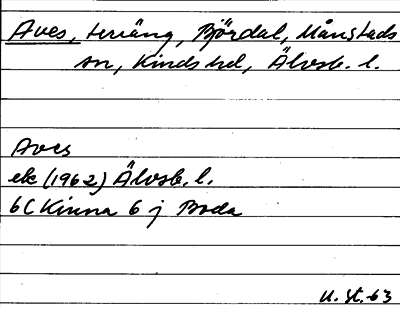 Aves, terräng, Björdal, Månstads
sn, Kinds hd, Älvsb. l.
Aves
ek (1962) Älvsb. l.
6C Kinna 6 j Boda
U. St. 63